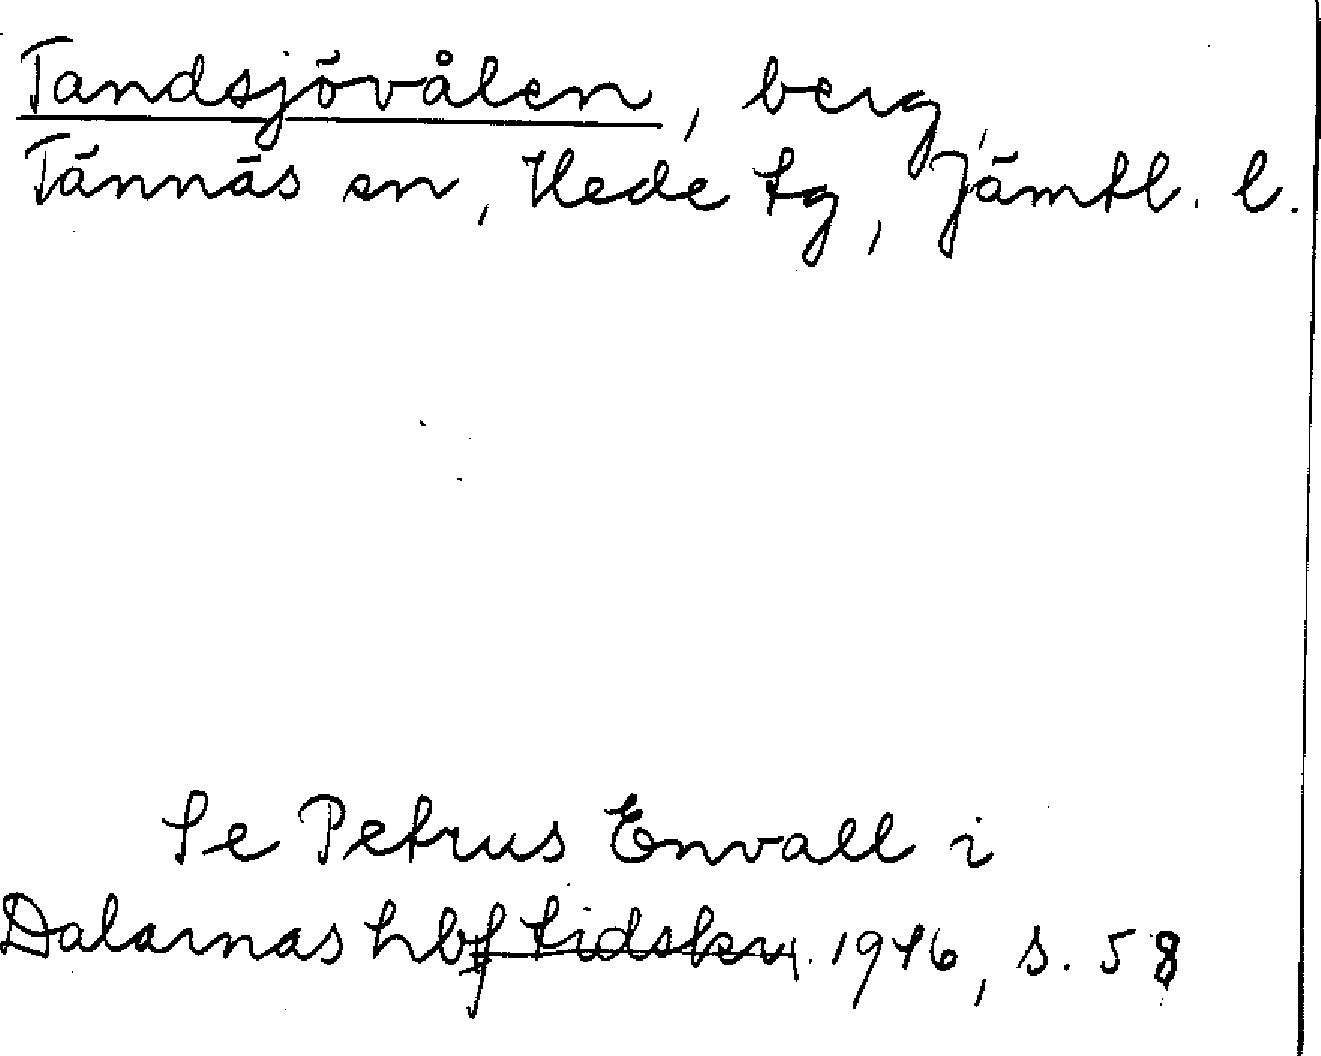 Tandsjövålen, berg,
Tännäs sn, Hede tg, Jämtl. l.
Se Petrus Envall i
Dalarnas hbf tidskr. 1946, s. 58